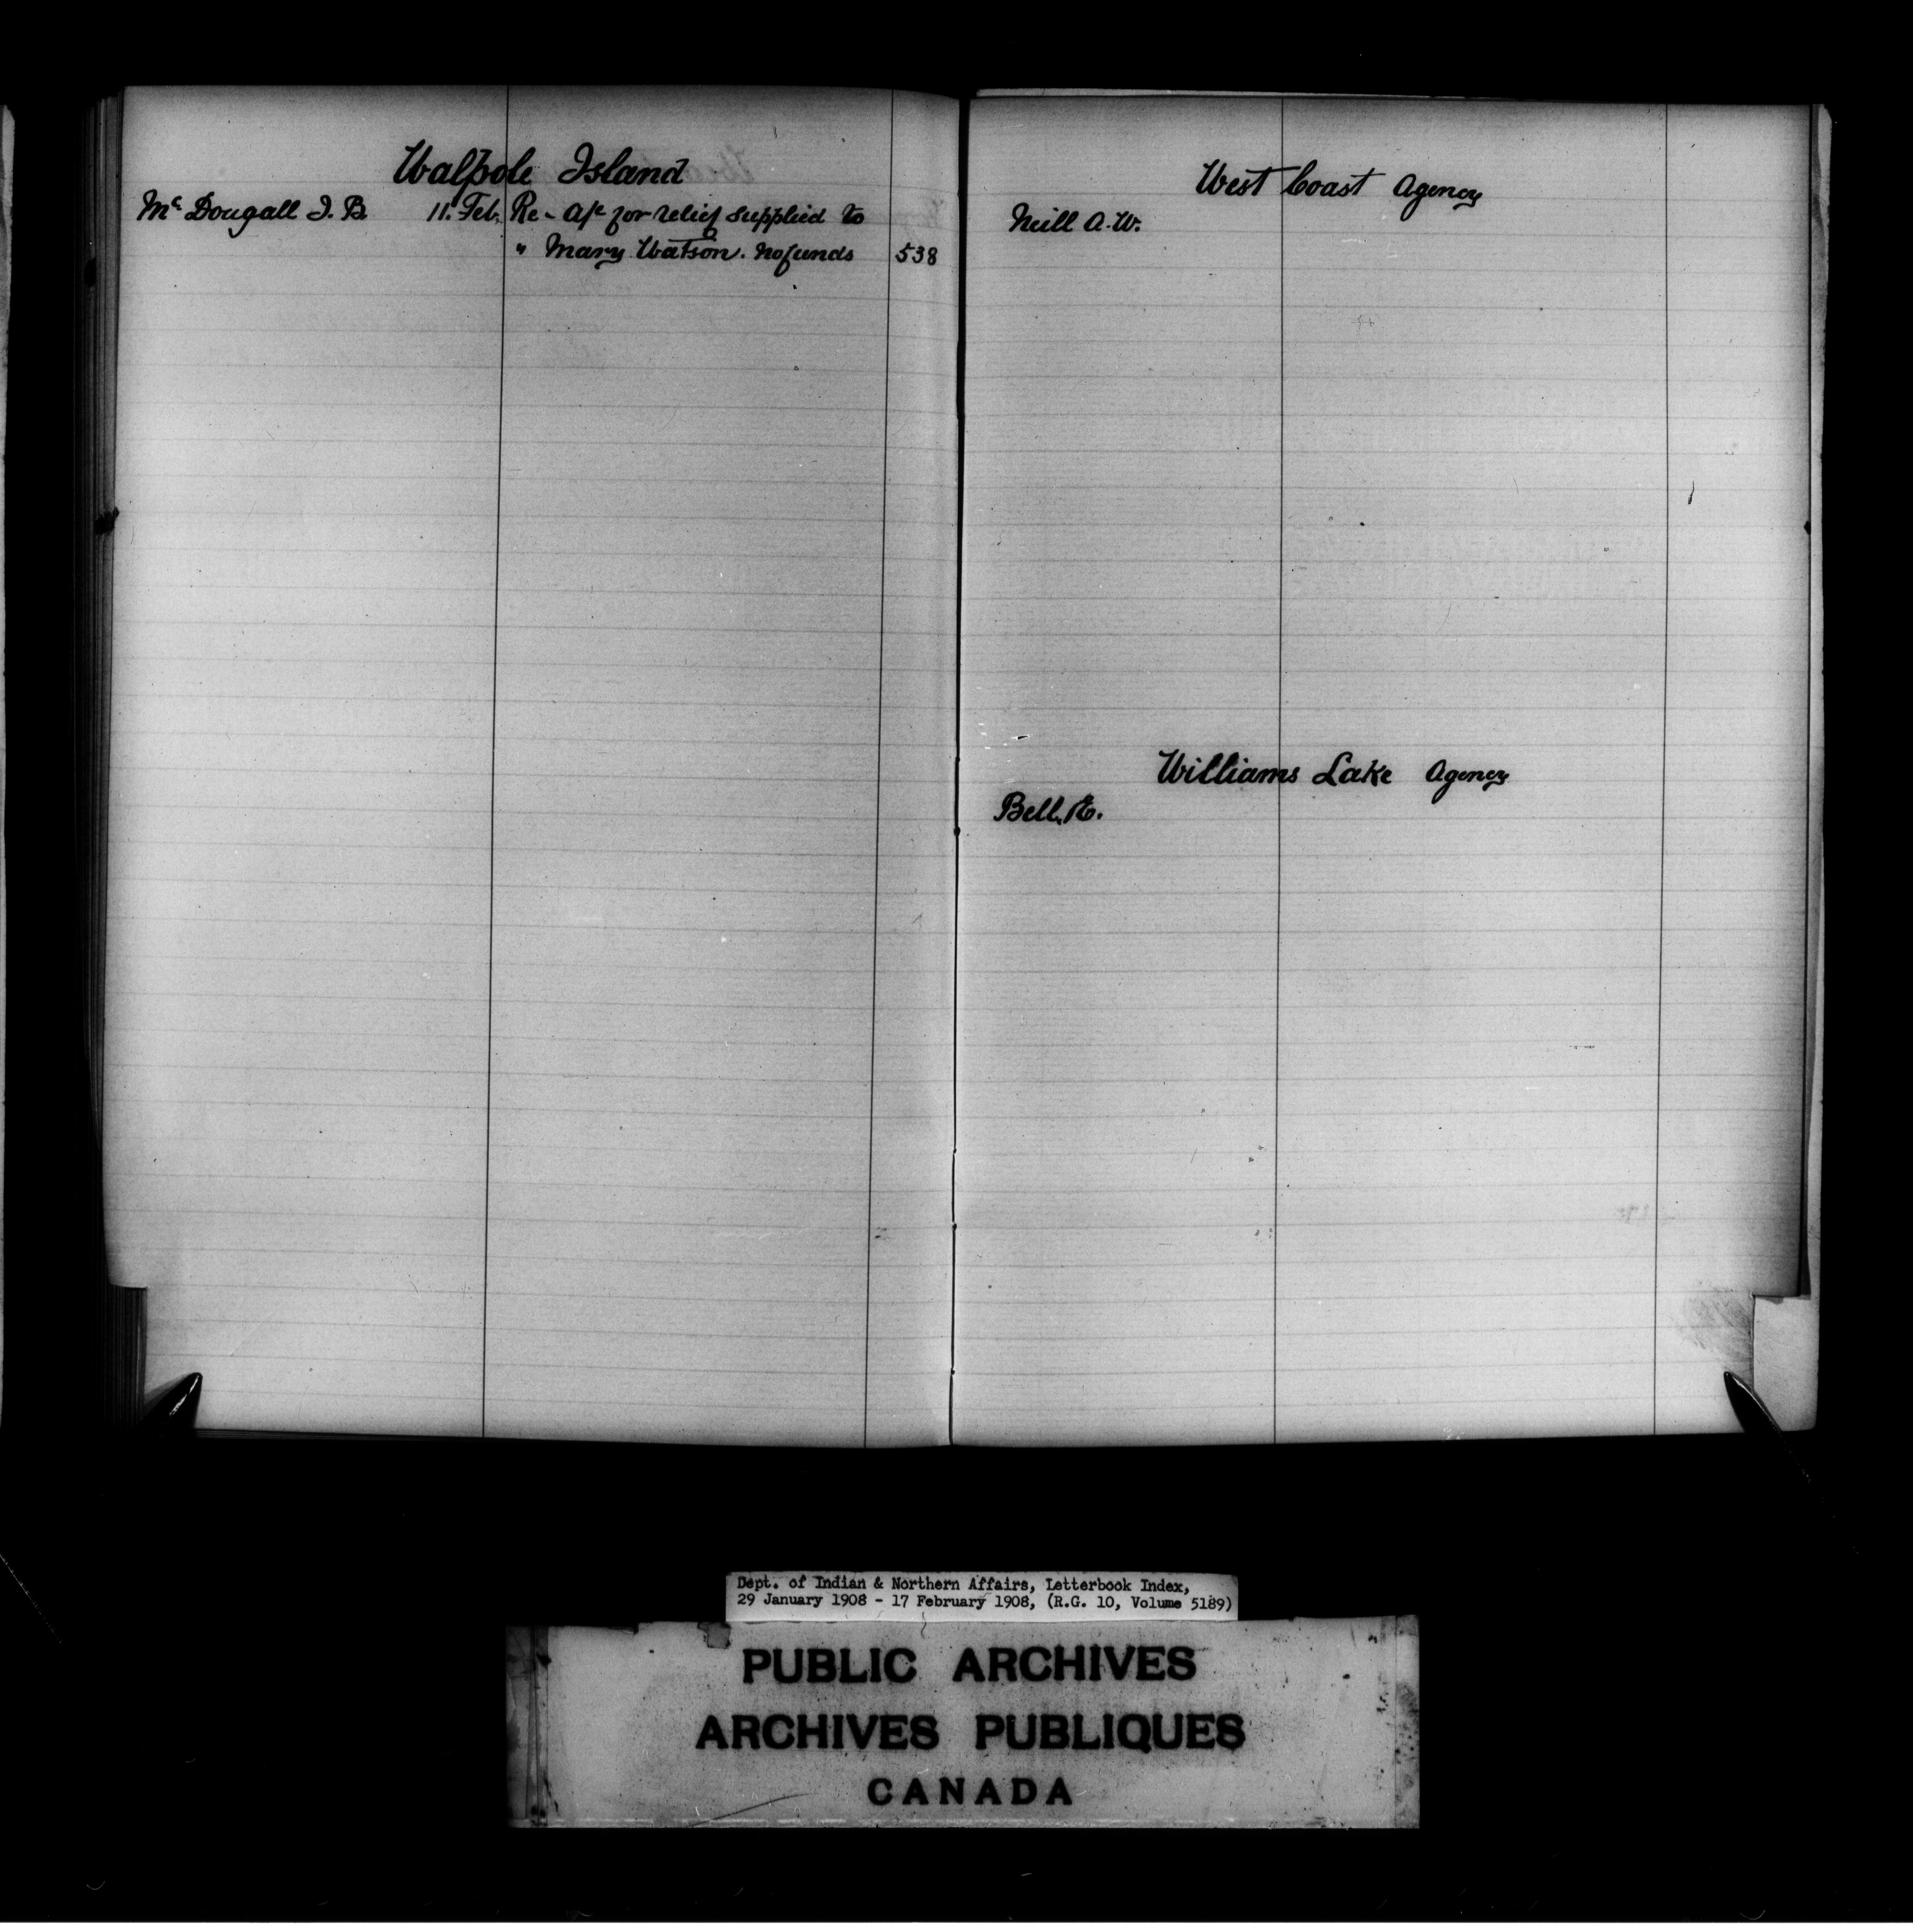 Walpole Island
Mc Dougall J. B. 11. Feb. Re - a/c for relief supplied to
" Mary Watson. No funds 538
West Coast Agency
Neill A. W.
Williams Lake Agency
Bell, E.
Dept. of Indian & Northern Affairs, Letterbook Index,
29 January 1908 - 17 February 1908, (R.G. 10, Volume 5189)
PUBLIC ARCHIVES
ARCHIVES PUBLIQUES
CANADA